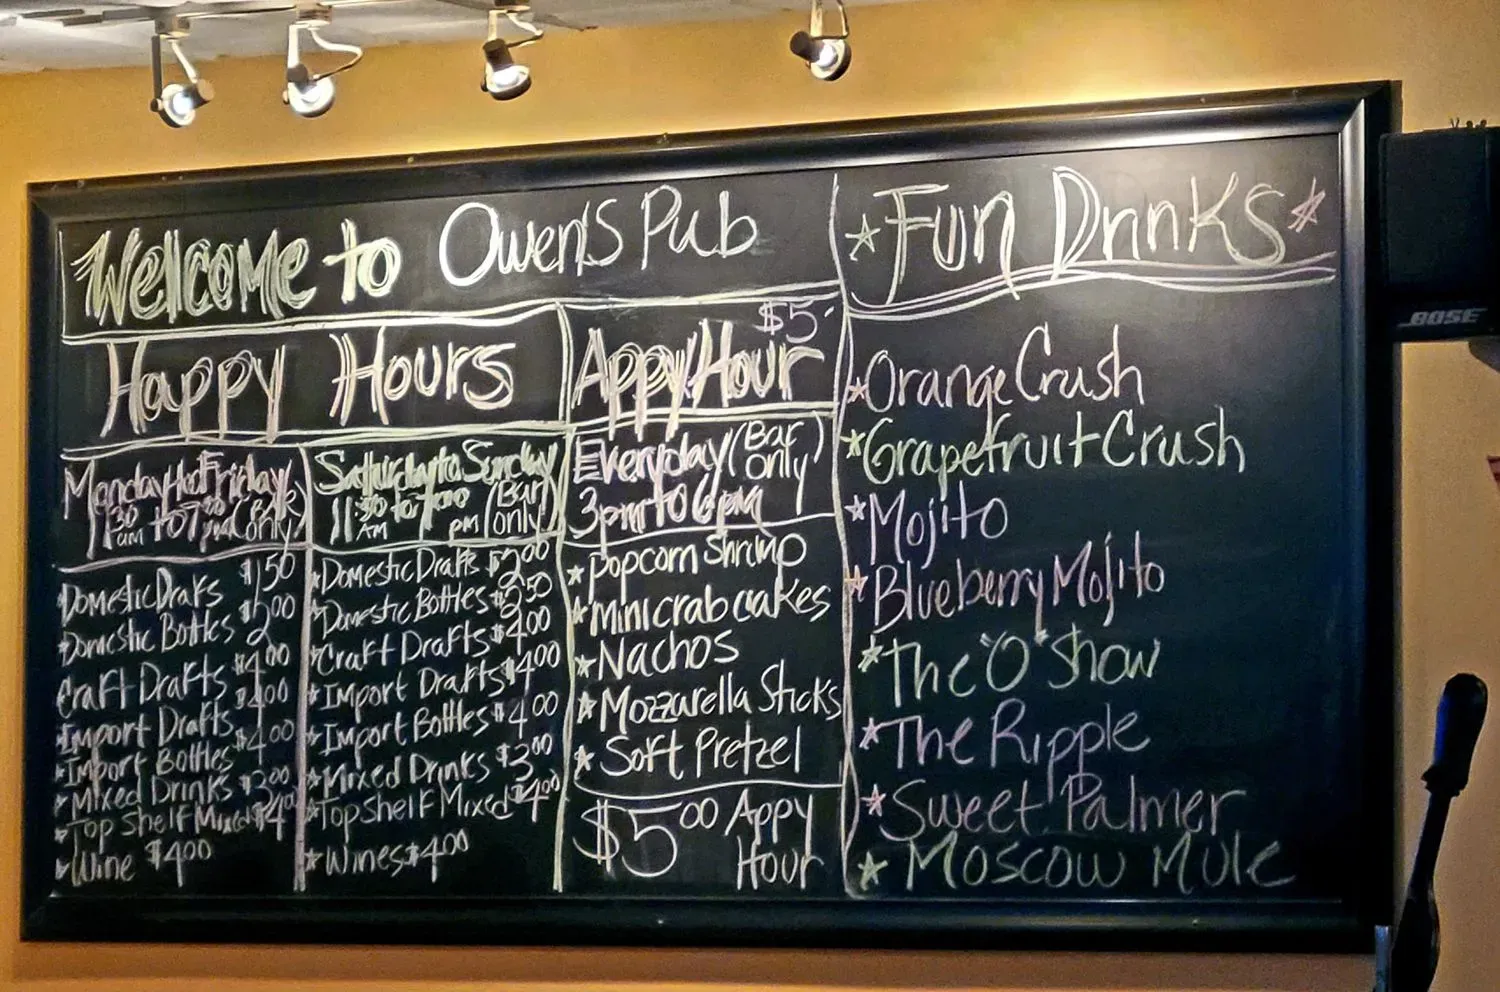 Welcome to Owen's Pub
Happy Hours
Monday to Friday
11 30 am to 7 00 pm (Bar only)
Domestic Drafts $1 50
Domestic Bottles $2 00
Craft Drafts $4 00
Import Drafts $4 00
Import Bottles $4 00
Mixed Drinks $3 00
Top Shelf Mixed $4 00
Wine $4 00
Saturday to Sunday
11 30 AM to 7 00 pm (Bar only)
Domestic Drafts $2 00
Domestic Bottles $2 50
Craft Drafts $4 00
Import Drafts $4 00
Import Bottles $4 00
Mixed Drinks $3 00
Top shelf Mixed $4 00
Wines $4 00
$5
Appy Hour
Everyday (Bar only)
3pm to 6pm
Popcorn Shrimp
Mini crab cakes
Nachos
Mozzarella Sticks
Soft Pretzel
$5 00 Appy
Hour
Fun Drinks
Orange Crush
Grapefruit Crush
Mojito
Blueberry Mojito
The "O" Show
The Ripple
Sweet Palmer
Moscow Mule
BOSE